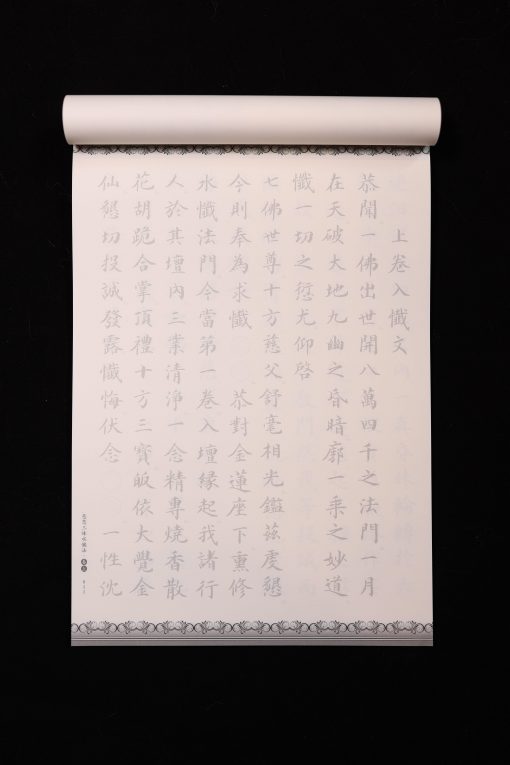 上卷入懺文
恭聞一佛出世開八萬四千之法門一月
在天破大地九幽之昏暗廓一乘之妙道
懺一切之愆尤仰啓
七佛世尊十方慈父舒毫相光鑑茲虔懇
今則奉為求懺 恭對金蓮座下熏修
水懺法門今當第一卷入壇緣起我諸行
人於其壇內三業清淨一念精專燒香散
花胡跪合掌頂禮十方三寶皈依大覺金
仙懇切投誠發露懺悔伏念 一性沈
慈悲三昧水懺法 卷上